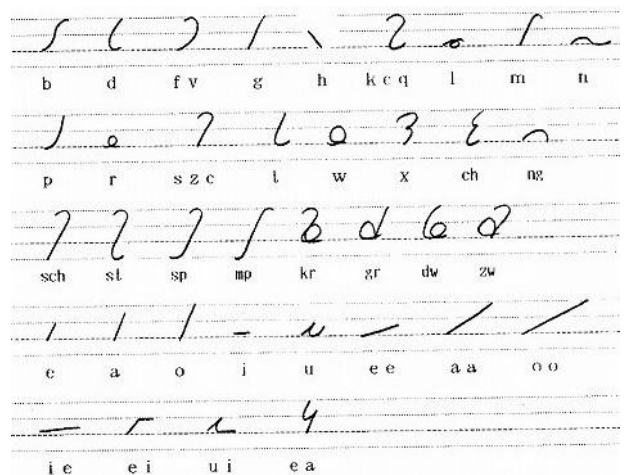 b d f v g h k c q l m n
p r s z c t w x ch ng
sch st sp mp kr gr dw zw
e a o i u e e a a o o
i e e i u i e a